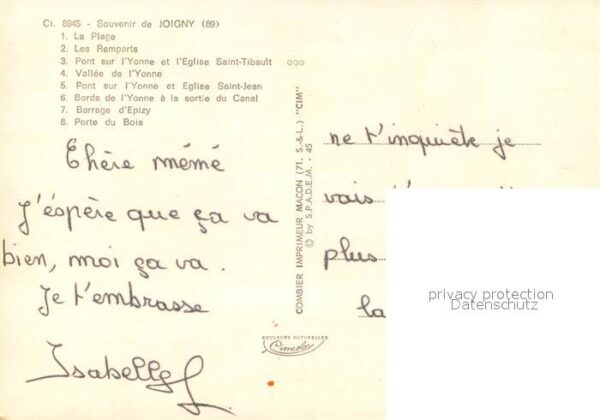 Cl. 8945 - Souvenir de JOIGNY (89)
1. La Plage
2. Les Remparts
3. Pont sur l'Yonne et l'Eglise Saint-Tibault
4. Vallée de l'Yonne
5. Pont sur l'Yonne et Eglise Saint-Jean
6. Bords de l'Yonne à la sortie du Canal
7. Barrage d'Epizy
8. Porte du Bois
Chère mémé
J'éspère que ça va
bien, moi ça va.
Je t'embrasse
Isabelle
COMBIER IMPRIMEUR MACON (71, S.-&-L.) "CIM"
© by S.P.A.D.E.M. - 45
COULEURS NATURELLES
Cimcolor
ne t'inquiète je
vais
plus
la
privacy protection
Datenschutz